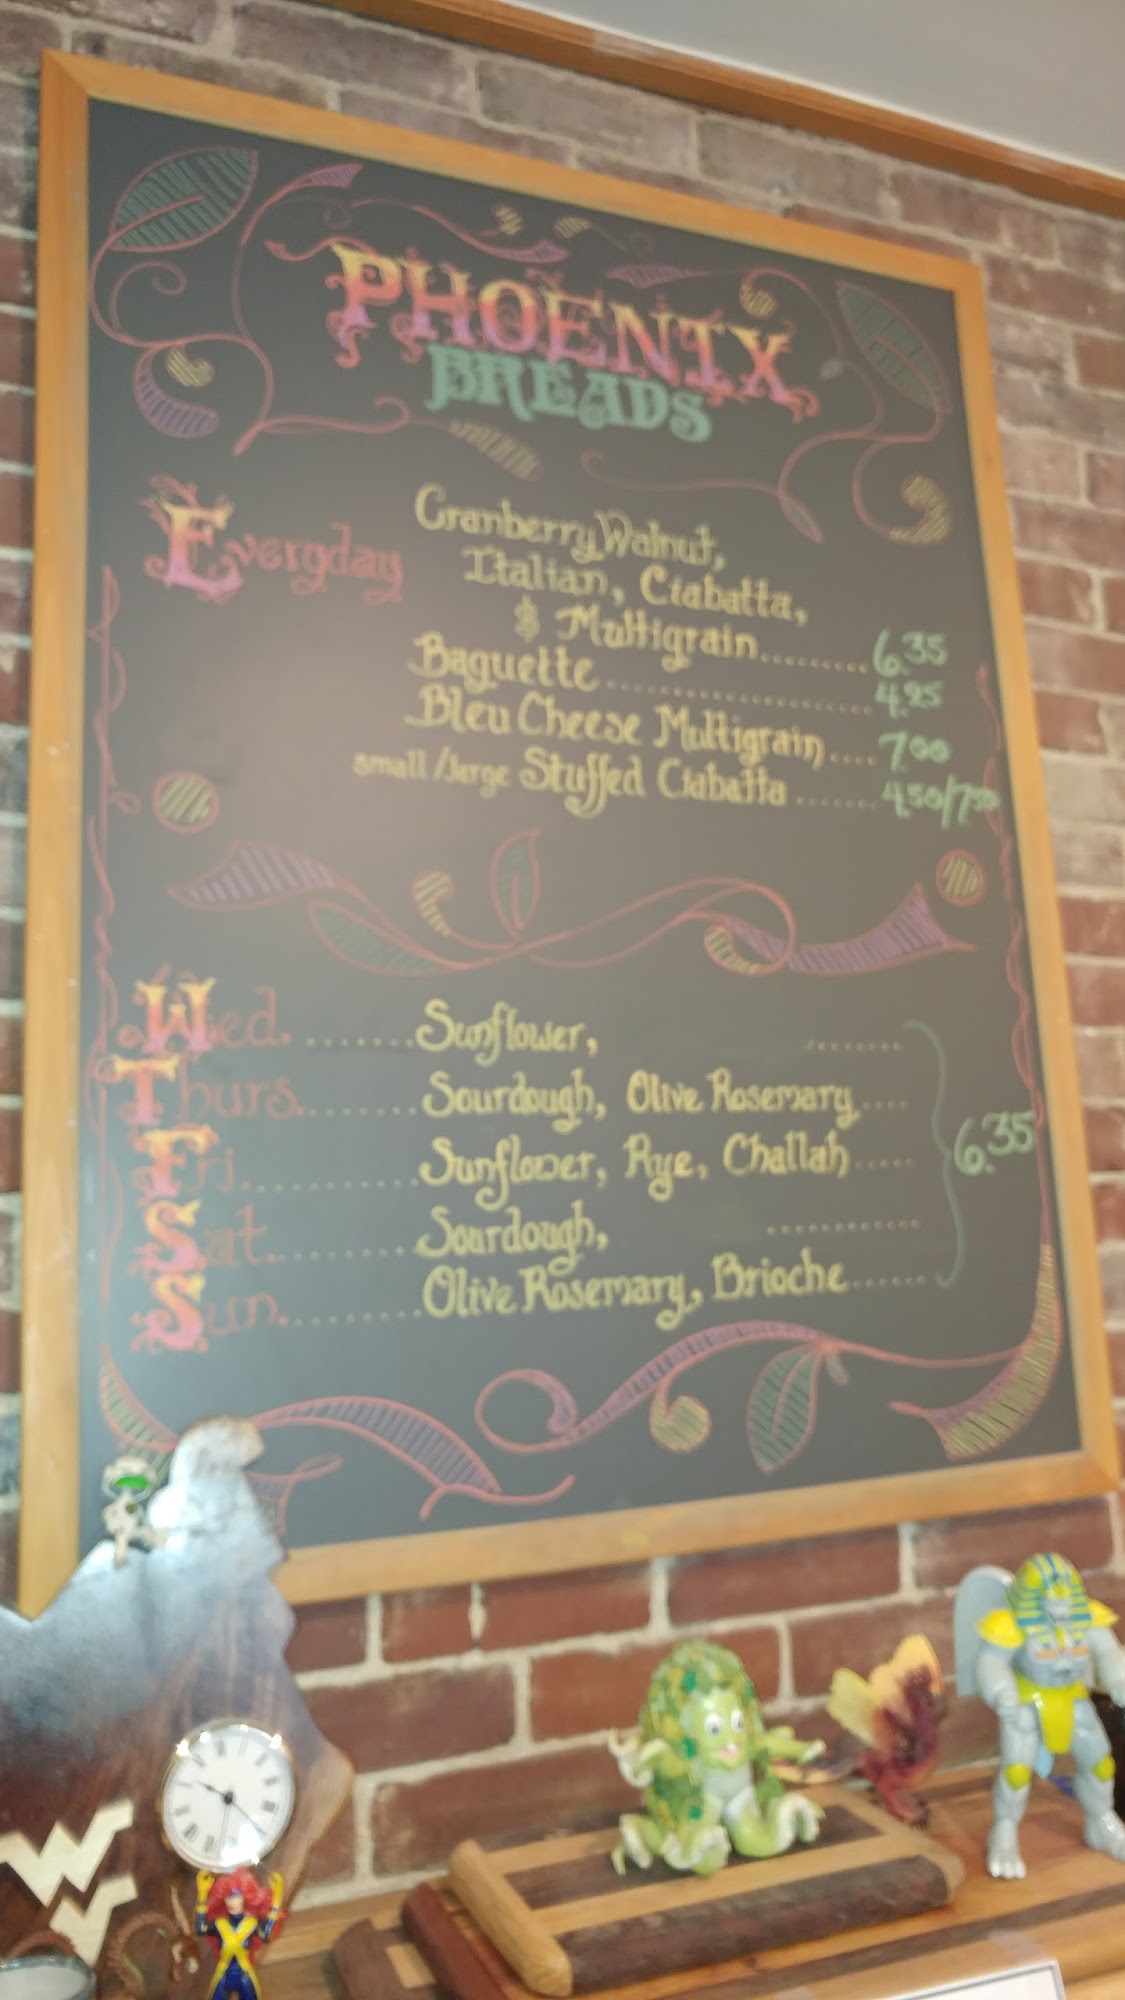 PHOENIX
BREADS
Everyday
Cranberry Walnut,
Italian, Ciabatta,
& Multigrain.........6.35
Baguette....................4.25
Bleu Cheese Multigrain....7.00
small/large Stuffed Ciabatta.......4.50/7.50
Wed........Sunflower, .......
Thurs........Sourdough, Olive Rosemary....
Fri...........Sunflower, Rye, Challah.....
Sat..........Sourdough, ............
Sun.........Olive Rosemary, Brioche......
6.35